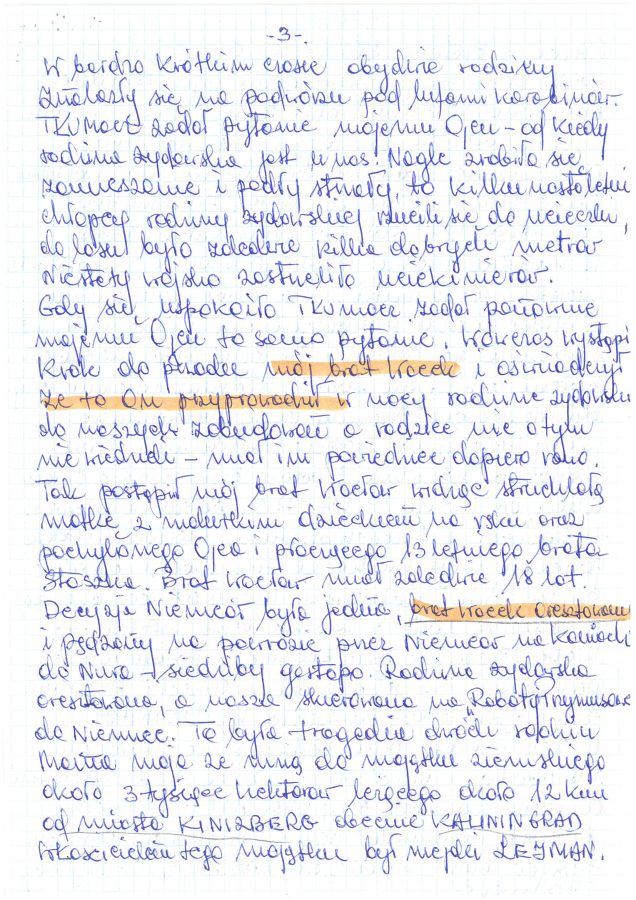 -3-
W bardzo krótkim czasie obydwie rodziny
znalazły się na podwórzu pod lufami karabinów.
Tłumacz zadał pytanie mojemu Ojcu - od kiedy
rodzina żydowska jest u nas. Nagle zrobiło się
zamieszanie i padły strzały, to kilkunastoletni
chłopcy rodziny żydowskiej rzucili się do ucieczki,
do lasu było zaledwie kilka dobrych metrów
Niestety wojsko zastrzeliło uciekinierów.
Gdy się uspokoiło Tłumacz zadał ponownie
mojemu Ojcu to samo pytanie. Wówczas wystąpi
krok do przodu mój brat Wacek i oświadczył
że to On przyprowadził w nocy rodzinę żydowską
do naszych zabudowań a rodzice nic o tym
nie wiedzieli - miał im powiedzieć dopiero rano.
Tak postąpił mój brat Wacław widząc struchlałą
matkę z malutkim dzieckiem na ręku oraz
pochylonego Ojca i płaczącego 13 letniego brata
Staszka. Brat Wacław miał zaledwie 18 lat.
Decyzja Niemców była jedna, brat Wacek aresztowany
i pędzony na powrozie przez Niemców na koniach
do Nura - siedziby gestapo. Rodzina żydowska
aresztowana, a nasza skierowana na „Roboty Przymusowe
do Niemiec. To była tragedia dwóch rodzin
Mama moja ze mną do majątku ziemskiego
około 3 tysięcy hektarów leżącego około 12 km
od miasta KINIZBERG obecnie KALININGRAD
Właścicielem tego majątku był niejaki LEJMAN.